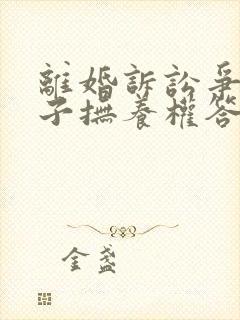 離婚訴訟爭
子撫養權答
金盞